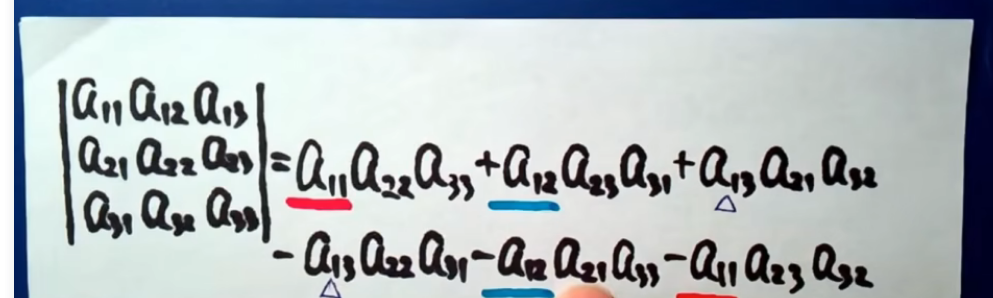 |a₁₁ a₁₂ a₁₃|
|a₂₁ a₂₂ a₂₃| = a₁₁a₂₂a₃₃ + a₁₂a₂₃a₃₁ + a₁₃a₂₁a₃₂
|a₃₁ a₃₂ a₃₃|
- a₁₃a₂₂a₃₁ - a₁₂a₂₁a₃₃ - a₁₁a₂₃a₃₂